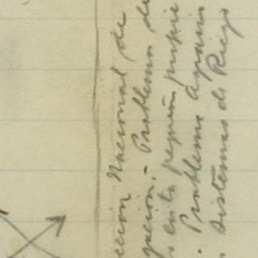 ccion Nacional de
gacion. - Problema de
en la pequeña propie
. Problema Agrario
Sistemas de Riego